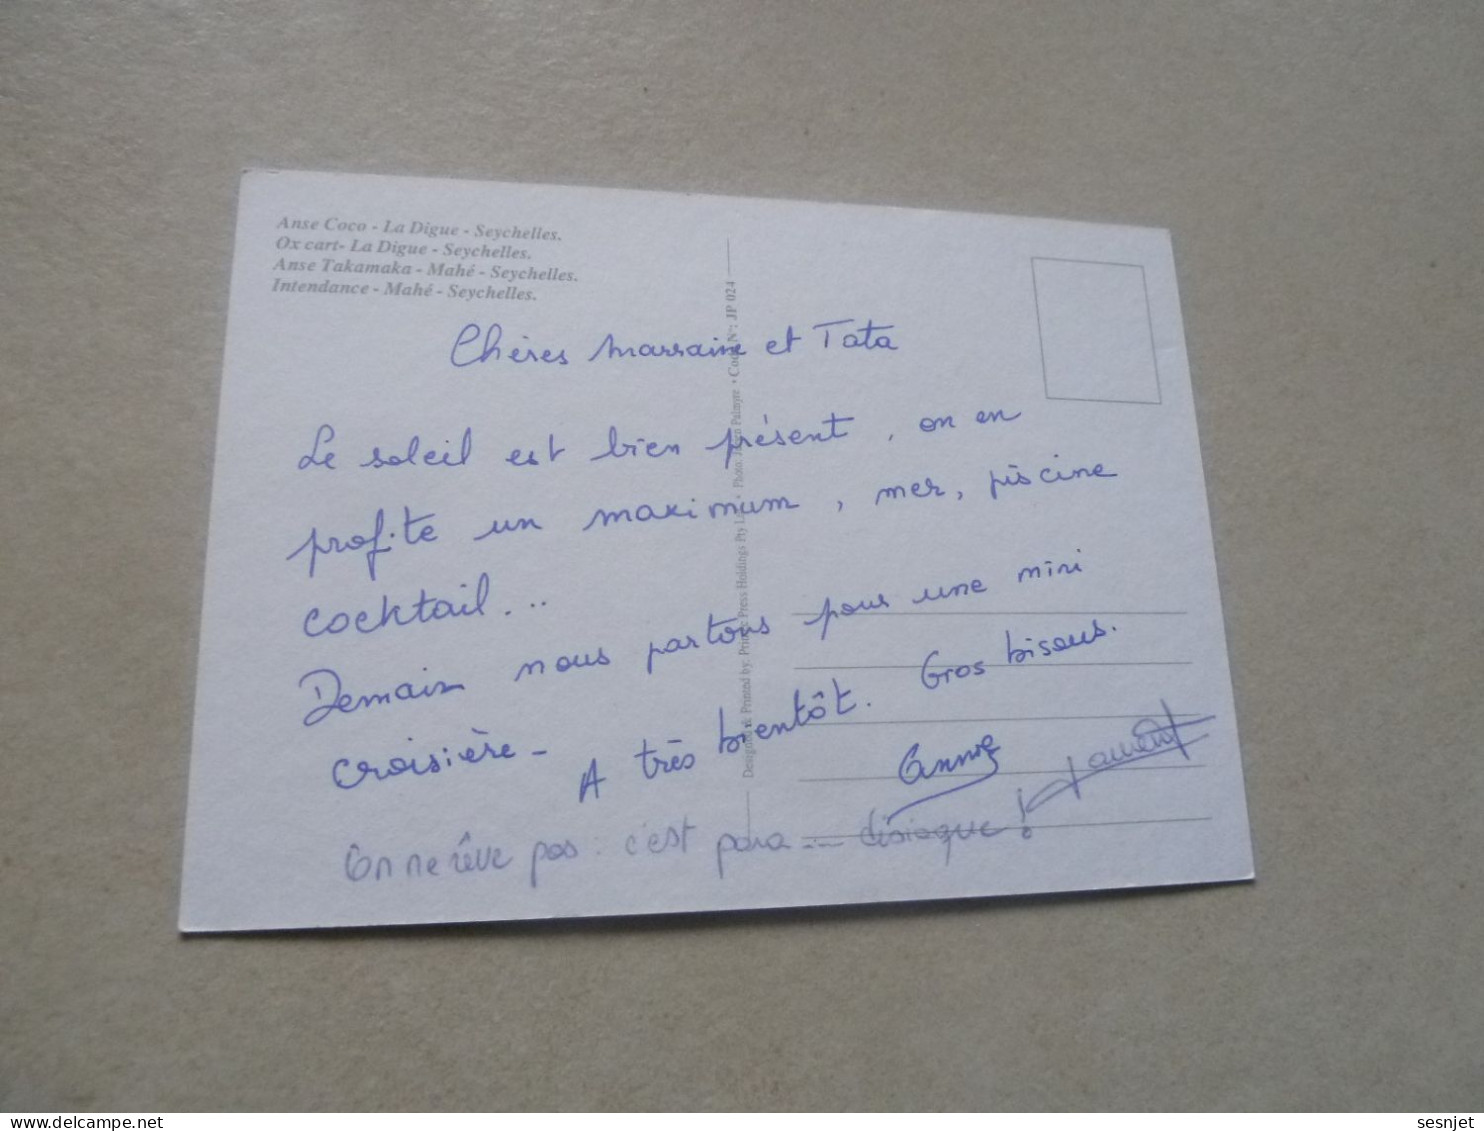 Anse Coco - La Digue - Seychelles.
Ox cart- La Digue - Seychelles.
Anse Takamaka - Mahé - Seychelles.
Intendance - Mahé - Seychelles.
Chères Marraine et Tata
Le soleil est bien présent, on en
profite un maximum, mer, piscine
cocktail...
Demain nous partons pour une mini
croisière - A très bientôt. Gros bisous.
Annie Laurent
On ne rêve pas : c'est para... disiaque !
Designed & Printed by: Printec Press Holdings Pty Ltd • Photo: Palmyre • Code N°: JP 024
sesnjet